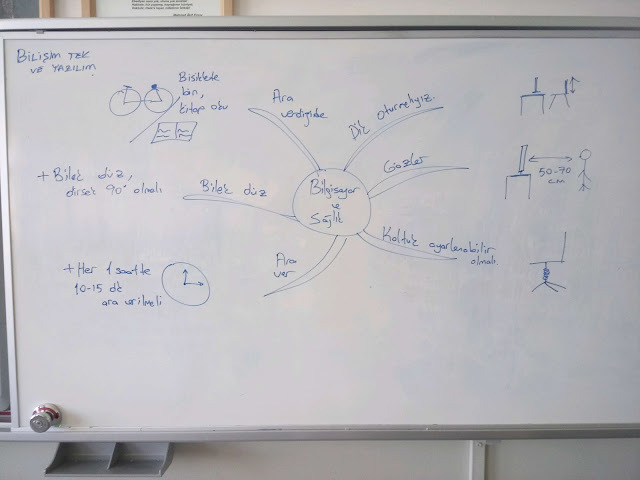 BİLİŞİM TEK
VE YAZILIM
Bisiklete
bin,
kitap oku
Ara
verdiğinde
Dik oturmalıyız.
+ Bilek düz,
dirsek 90° olmalı
Bilek düz
Bilgisayar
ve
Sağlık
Gözler
50-70
cm
Koltuk ayarlanabilir
olmalı
+ Her 1 saatte
10-15 dk
ara verilmeli
Ara
ver